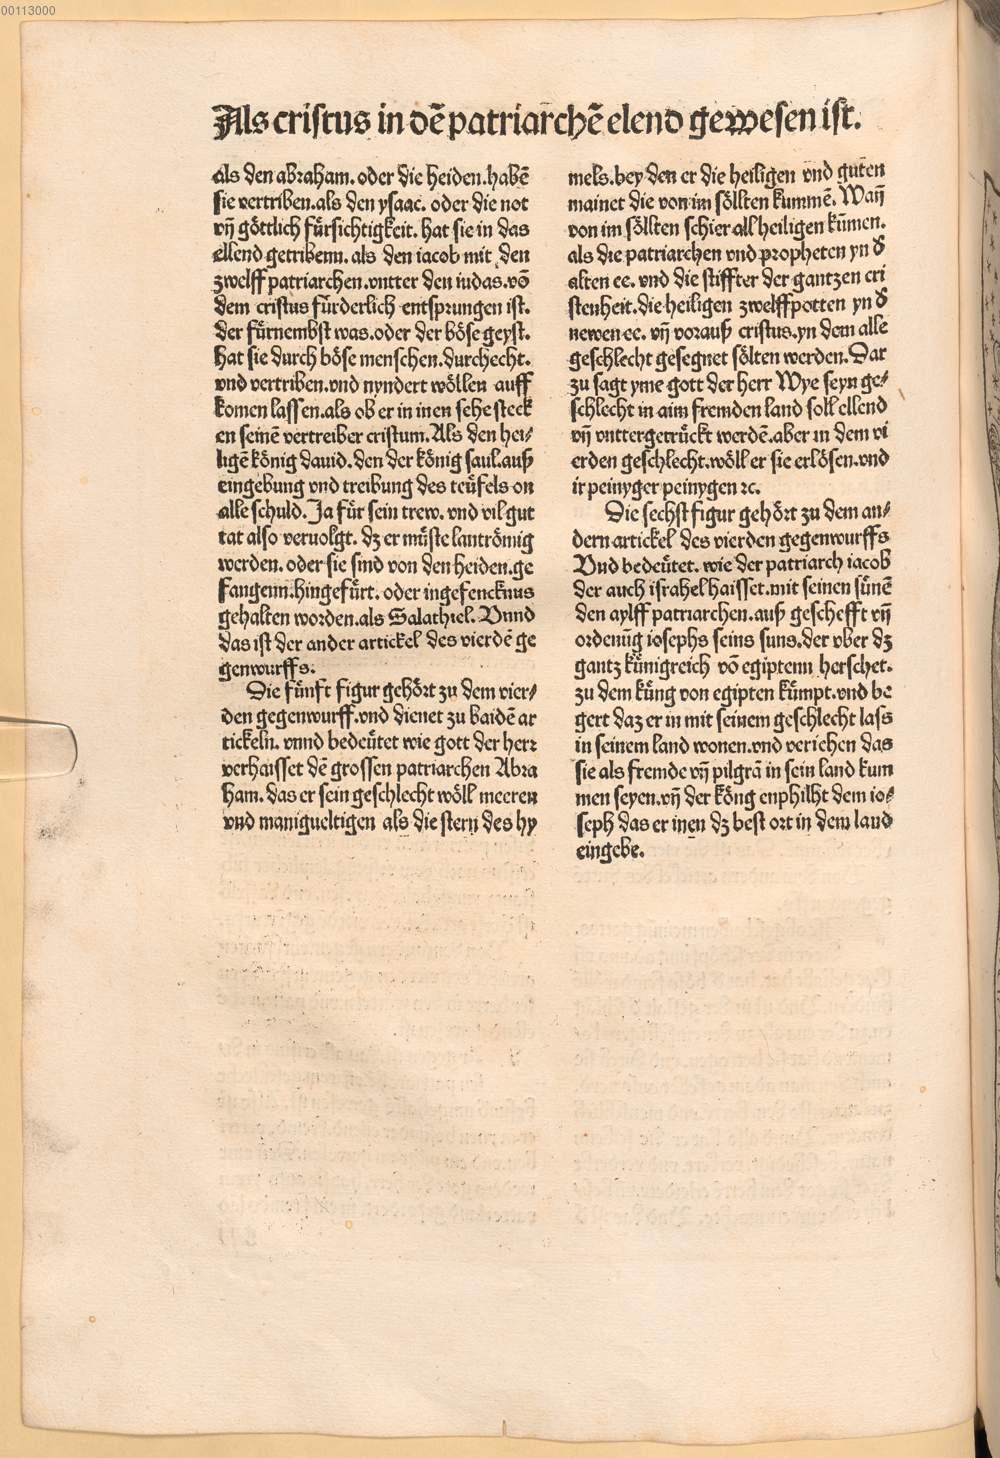 00113000
Als cristus in dē patriarchē elend gewesen ist.
als den abraham. oder die heiden. habē
sie vertriben. als den ysaac. oder die not
vn̄ göttlich fürsichtigkeit. hat sie in das
ellend getribenn. als den iacob mit den
zwelff patriarchen. vntter den iudas. vō
dem cristus fürderlich entsprungen ist.
der fürnembst was. oder der böse geyst.
hat sie durch böse menschen. durchecht.
vnd vertriben. vnd nyndert wöllen auff
komen lassen. als ob er in inen sehe steck
en seinē vertreiber cristum. Als den hei⸗
ligē könig dauid. den der könig saul. auß
eingebung vnd treibung des teüfels on
alle schuld. Ja für sein trew. vnd vil gut
tat also veruolgt. dz er müste lantrömig
werden. oder sie sind von den heiden. ge
fangenn. hingefürt. oder in gefencknus
gehalten worden. als Salathiel. Vnnd
das ist der ander artickel des vierdē ge
genwurffs.
Die fünft figur gehört zu dem vier⸗
den gegenwurff. vnd dienet zu baidē ar
tickeln. vnnd bedeütet wie gott der herr
verhaisset dē grossen patriarchen Abra
ham. das er sein geschlecht wöll meeren
vnd manigueltigen als die stern des hy
mels. bey den er die heiligen vnd guten
mainet die von im söllten kummē. Wan̄
von im söllten schier all heiligen kūmen.
als die patriarchen vnd propheten yn d̕
alten ee. vnd die stiffter der gantzen cri
stenheit. die heiligen zwelffpotten yn d̕
newen ee. vn̄ vorauß cristus. yn dem alle
geschlecht gesegnet sölten werden. Dar
zu sagt yme gott der herr Wye seyn ge⸗
schlecht in aim fremden land soll ellend
vn̄ vnttergetrückt werdē. aber in dem vi
erden geschlecht. wöll er sie erlösen. vnd
ir peinyger peinygen ⁊c.
Die sechst figur gehört zu dem an⸗
dern artickel des vierden gegenwurffs
Vnd bedeütet. wie der patriarch iacob
der auch israhel haisset. mit seinen sünē
den aylff patriarchen. auß geschefft vn̄
ordenūg iosephs seins suns. der vber dz
gantz künigreich vō egiptenn herschet.
zu dem küng von egipten kümpt. vnd be
gert daz er in mit seinem geschlecht lass
in seinem land wonen. vnd veriehen das
sie als fremde vn̄ pilgrā in sein land kum
men seyen. vn̄ der köng enphilht dem io⸗
seph das er inen dz best ort in dem land
eingebe.